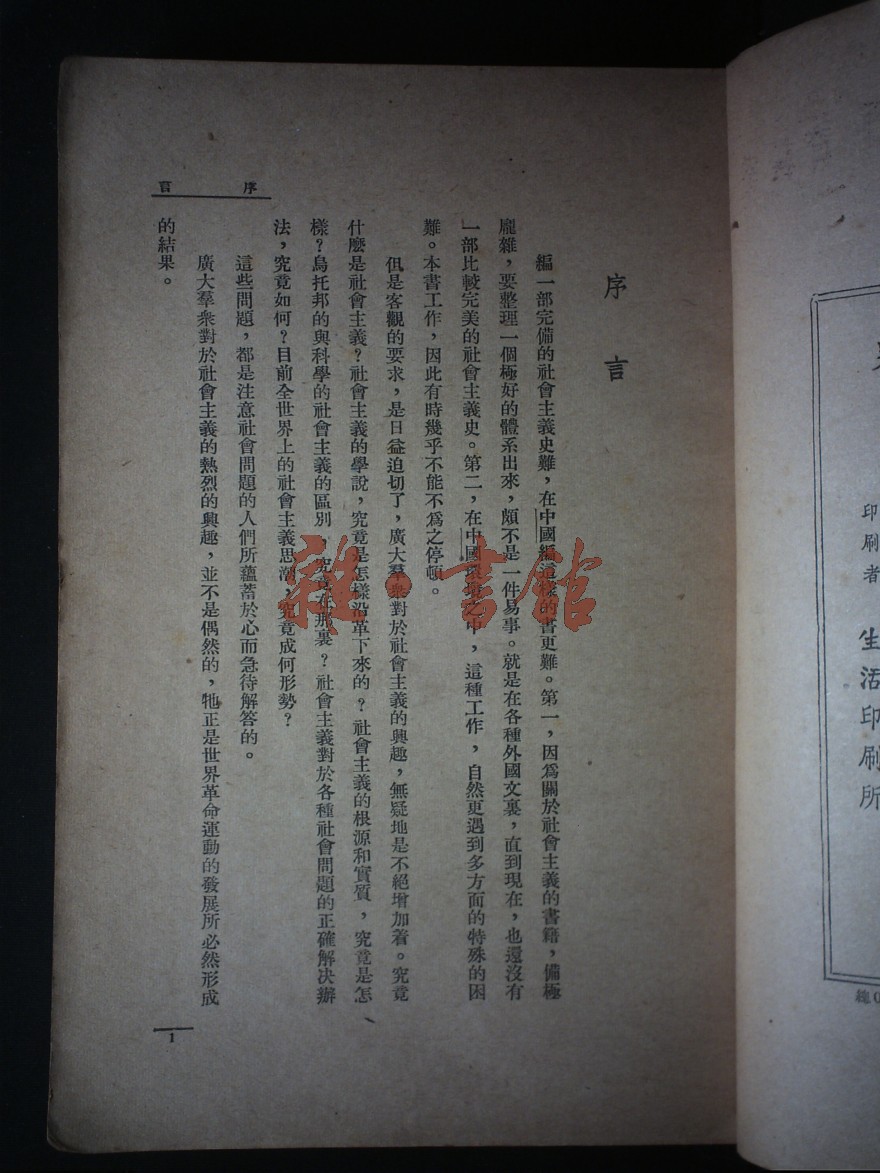 序言
編一部完備的社會主義史難，在中國編這樣的書更難。第一，因爲關於社會主義的書籍，備極
龐雜，要整理一個極好的體系出來，頗不是一件易事。就是在各種外國文裏，直到現在，也還沒有
一部比較完美的社會主義史。第二，在中國環境之中，這種工作，自然更遇到多方面的特殊的困
難。本書工作，因此有時幾乎不能不爲之停頓。
但是客觀的要求，是日益迫切了，廣大羣衆對於社會主義的興趣，無疑地是不絕增加着。究竟
什麼是社會主義？社會主義的學說，究竟是怎樣沿革下來的？社會主義的根源和實質，究竟是怎
樣？烏托邦的與科學的社會主義的區別，究竟在那裏？社會主義對於各種社會問題的正確解決辦
法，究竟如何？目前全世界上的社會主義思潮，究竟成何形勢？
這些問題，都是注意社會問題的人們所蘊蓄於心而急待解答的。
廣大羣衆對於社會主義的熱烈的興趣，並不是偶然的，牠正是世界革命運動的發展所必然形成
的結果。
序言
1
雜·書館
印刷者 生活印刷所
總